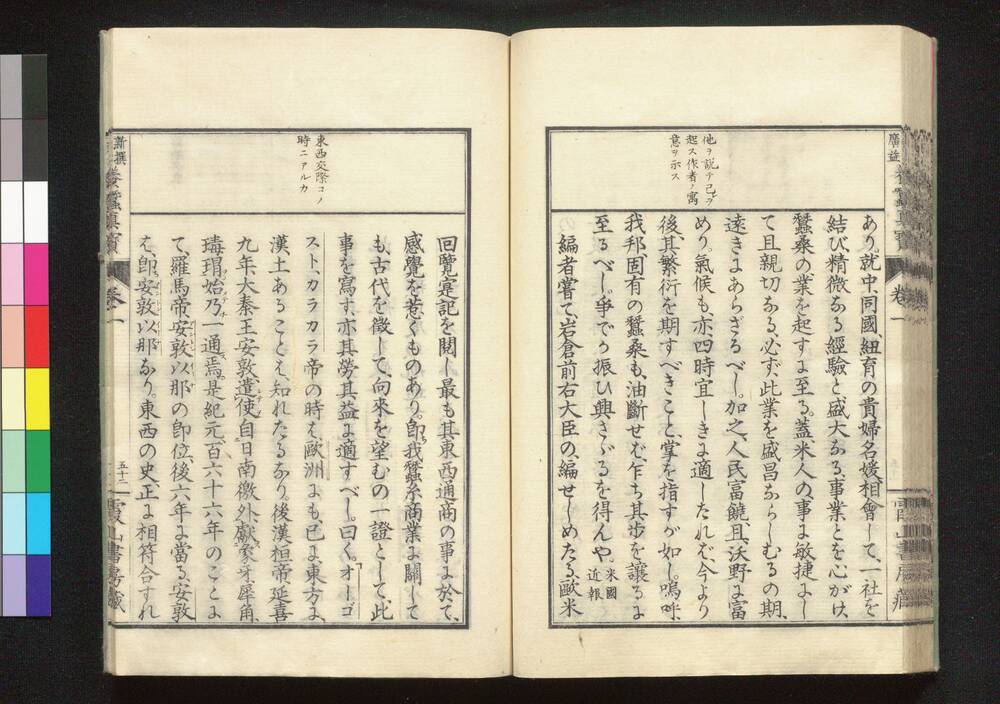 廣益 養蠶眞寶 卷一 霞山書房藏
他ヲ説テ己レヲ
起ス作者ノ寓
意ヲ示ス
あり、就中、同國紐育の貴婦名媛、相會して、一社を
結び、精微なる經驗と盛大なる、事業とを、心がけ、
蠶桑の業を起すに至る。蓋、米人の、事に敏捷にし
て、且親切なる、必ず、此業を盛昌ならしむるの期、
遠きにあらざるべし。加之、人民富饒、且、沃野に富
めり。氣候も、亦四時宜しきに適したれば、今より
後、其繁衍を期すべきこと、掌を指すが如し。嗚呼、
我邦、固有の蠶桑も、油斷せば、乍ち、其步を讓るに
至るべし。爭でか振ひ興さゞるを得んや。米國近報
編者嘗て、岩倉前右大臣の、編せしめたる、歐米
東西交際コノ
時ニアルカ
回覽寔記を閲し、最も其東西通商の事に於て、
感覺を惹くものあり。卽我蠶糸商業に關して
も、古代を徵して、向來を望むの一證として、此
事を寫す、亦其勞、其益に適すべし。曰く、「オーゴ
スト、カラカラ帝の時は、歐洲にも、已に、東方に、
漢土あることは、知れたるなり。後漢桓帝延喜
九年、大秦王安敦、遣使、自日南徼外、獻象牙犀角、
瑇瑁、始乃一通焉、是紀元百六十六年のことに
て、羅馬帝、安敦以那の卽位、後六年に當る、安敦
は、卽、安敦以那なり。東西の史、正に相符合すれ
新撰 養蠶眞寶 卷一 五十二 霞山書房藏